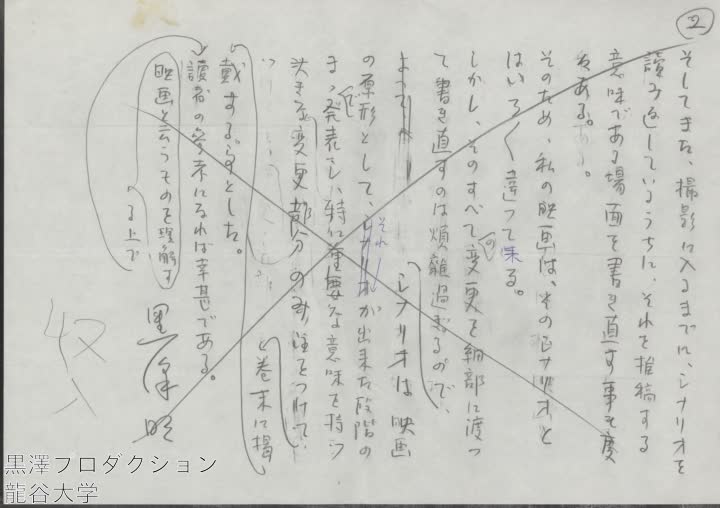 2
そしてまた、撮影に入るまでに、シナリオを
読み返しているうちに、それを推稿する
意味である場面を書き直す事も度々
ある。
そのため、私の映画は、そのシナリオと
はいろ〱違って来る。
しかし、そのすべての変更を細部に渡っ
て書き直すのは煩雑過ぎるので、
シナリオは映画
の原形として、それが出来た段階の
まゝ発表し、特に重要な意味を持つ
大きな変更部分のみ註をつけて
巻末に掲
載する事とした。
読者の参考になれば幸甚である。
映画と云うものを理解す
る上で
黒澤明
収
黒澤プロダクション
龍谷大学